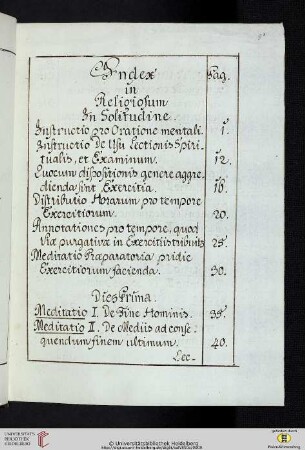 Index
Pag.
in
Religiosum
In Solitudine.
Instructio pro Oratione mentali. 1.
Instructio De Usu Lectionis Spiri-
tualis, et Examinum. 12.
Quocum dispositionis genere aggre-
dienda sint Exercitia. 16.
Distributio Horarum pro tempore
Exercitiorum. 20.
Annotationes pro tempore, quod
Viæ purgativæ in Exercitiis tribuitur 25.
Meditatio Præparatoria pridie
Exercitiorum facienda. 30.
Dies Prima.
Meditatio I. De Fine Hominis. 35.
Meditatio II. De Mediis ad conse-
quendum finem ultimum. 40.
Lec-
UNIVERSITÄTS-
BIBLIOTHEK
HEIDELBERG
Universitätsbibliothek Heidelberg